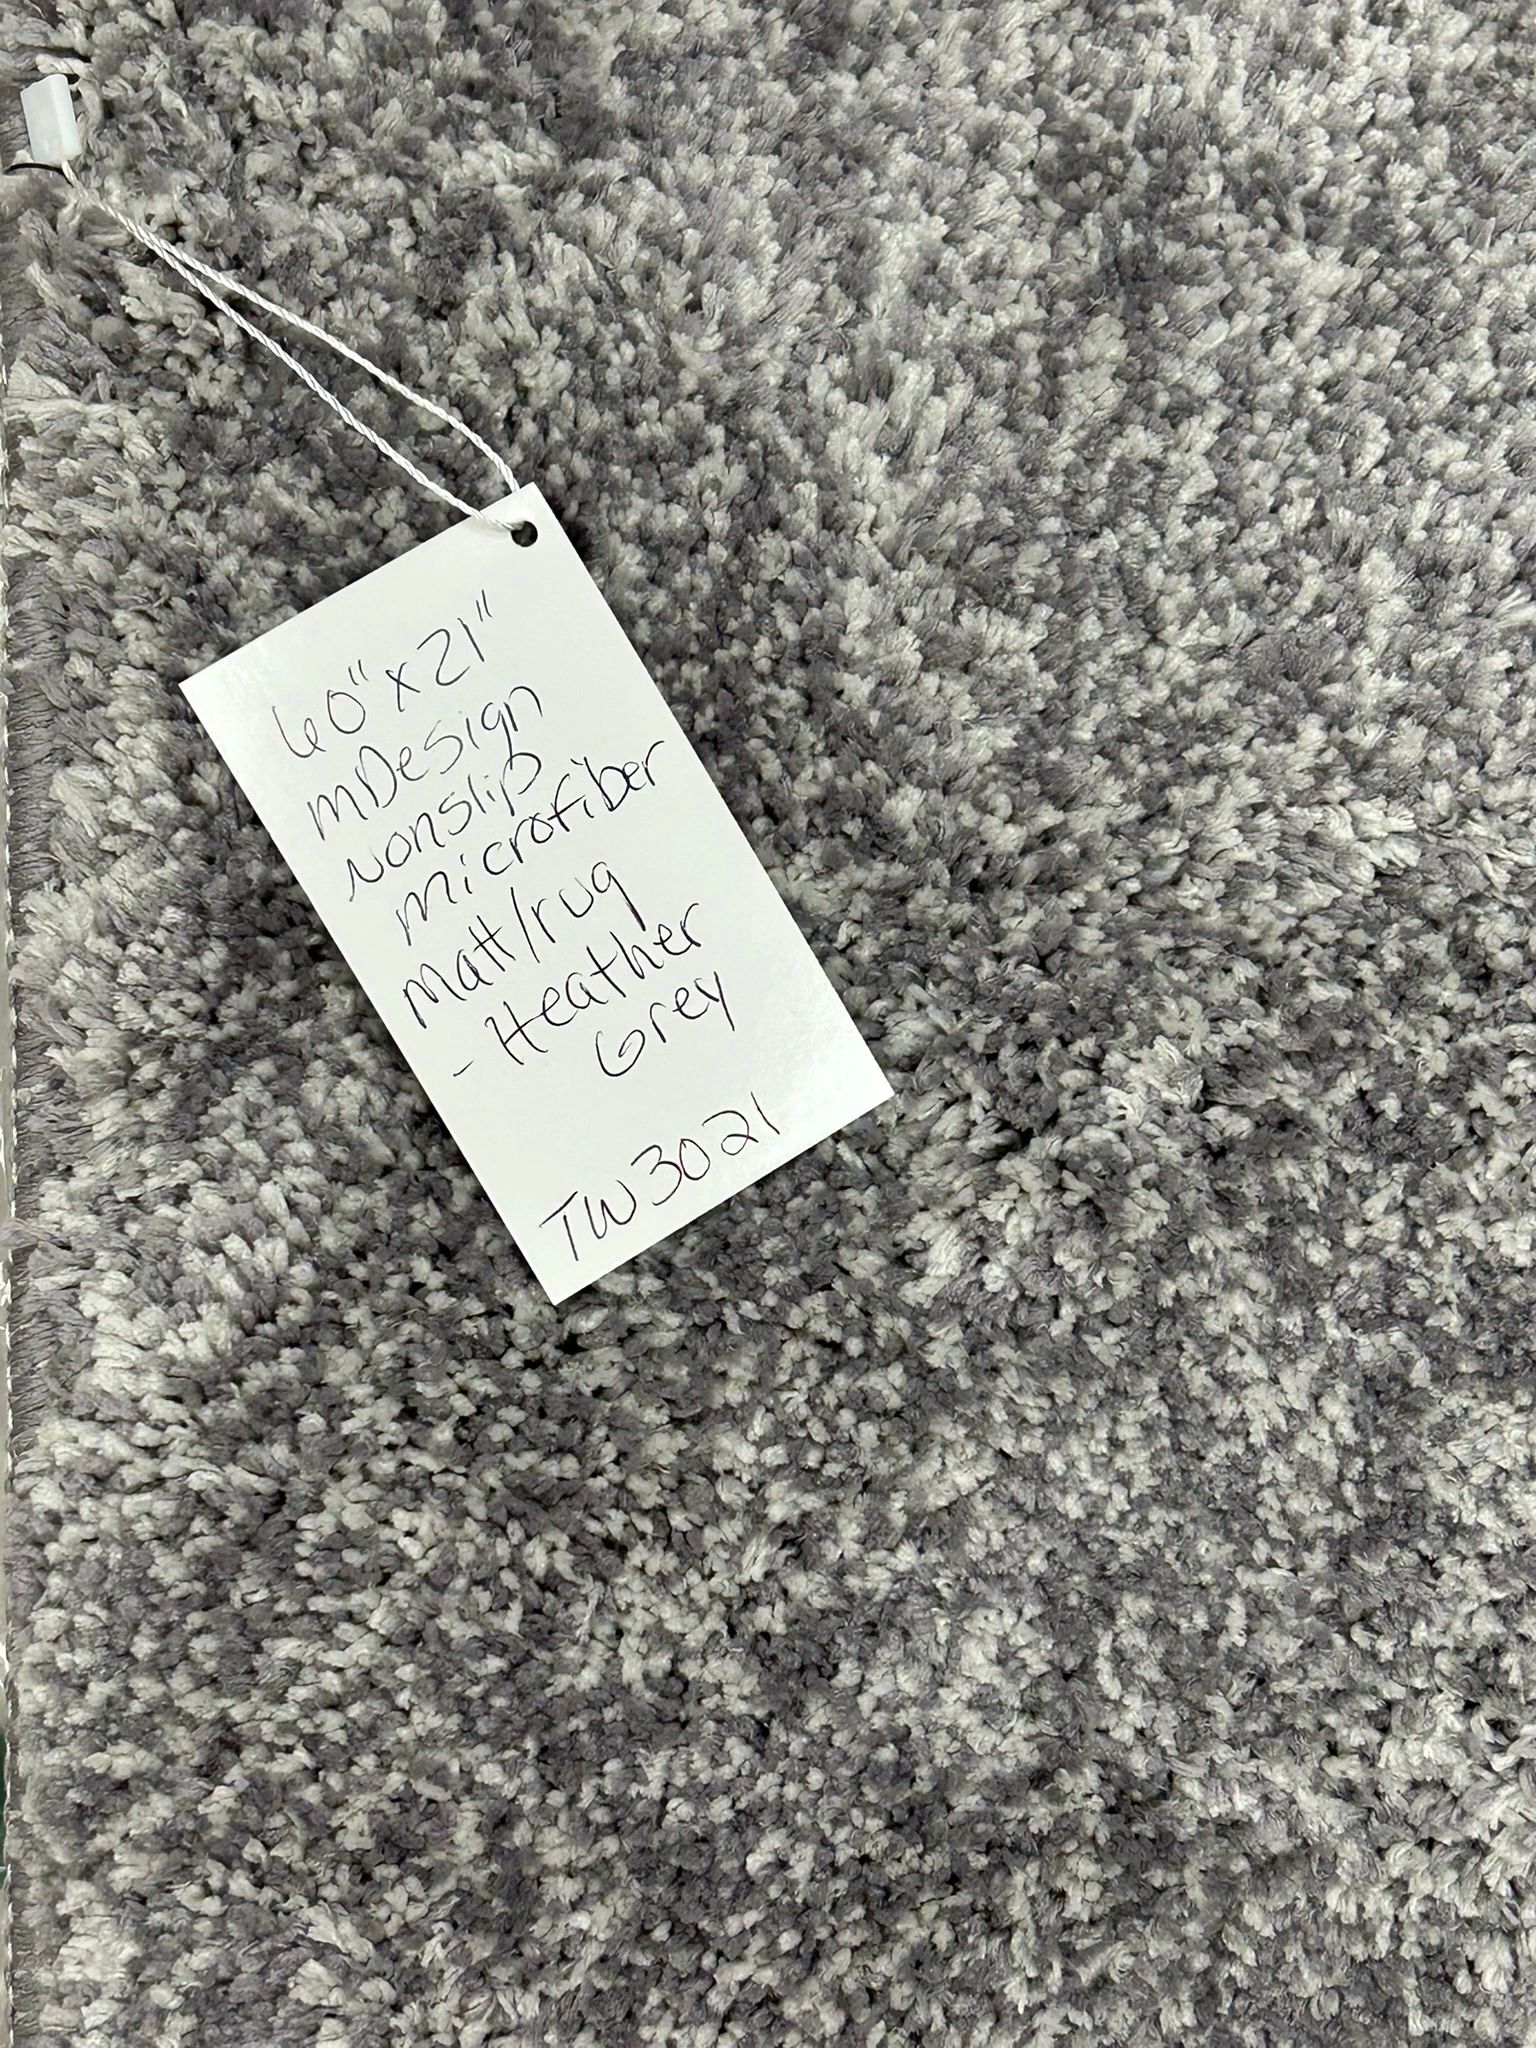 60" x 21"
mDesign
Nonslip
microfiber
Matt/rug
- Heather
Grey
TW3021